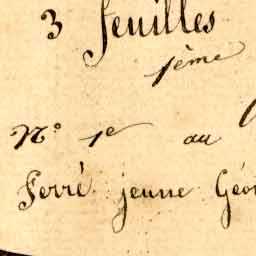 3 feuilles
1ème
N° 1e au
Ferré jeune Géo